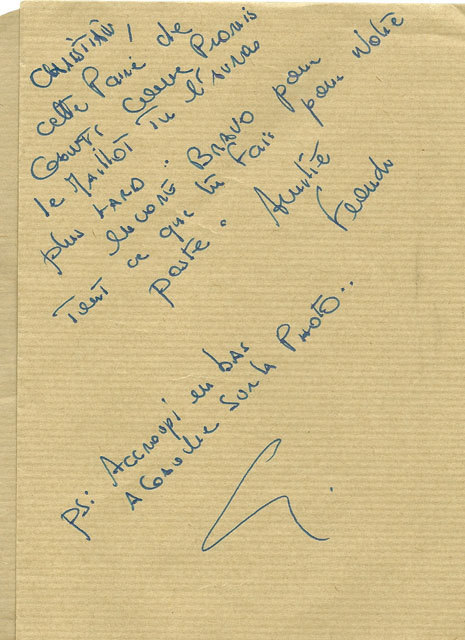 CHRISTIAN,
cette Paire de
GANTS comme Promis
le MAILLOT Tu l'AURAS
plus TARD.
encore BRAVO pour
Tout ce que tu fais pour Notre
poste. Amitié
PS: Accroupi en bas
A GAUCHE SUR la PHOTO..